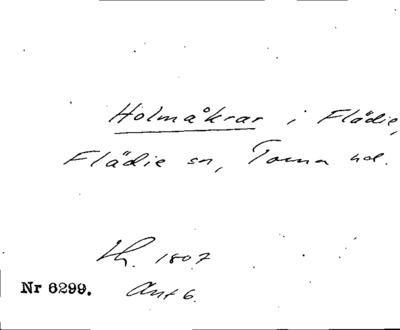 Holmåkrar i Flädie,
Flädie sn, Torna hd.
Lh. 1807
Nr 6299. Akt 6.